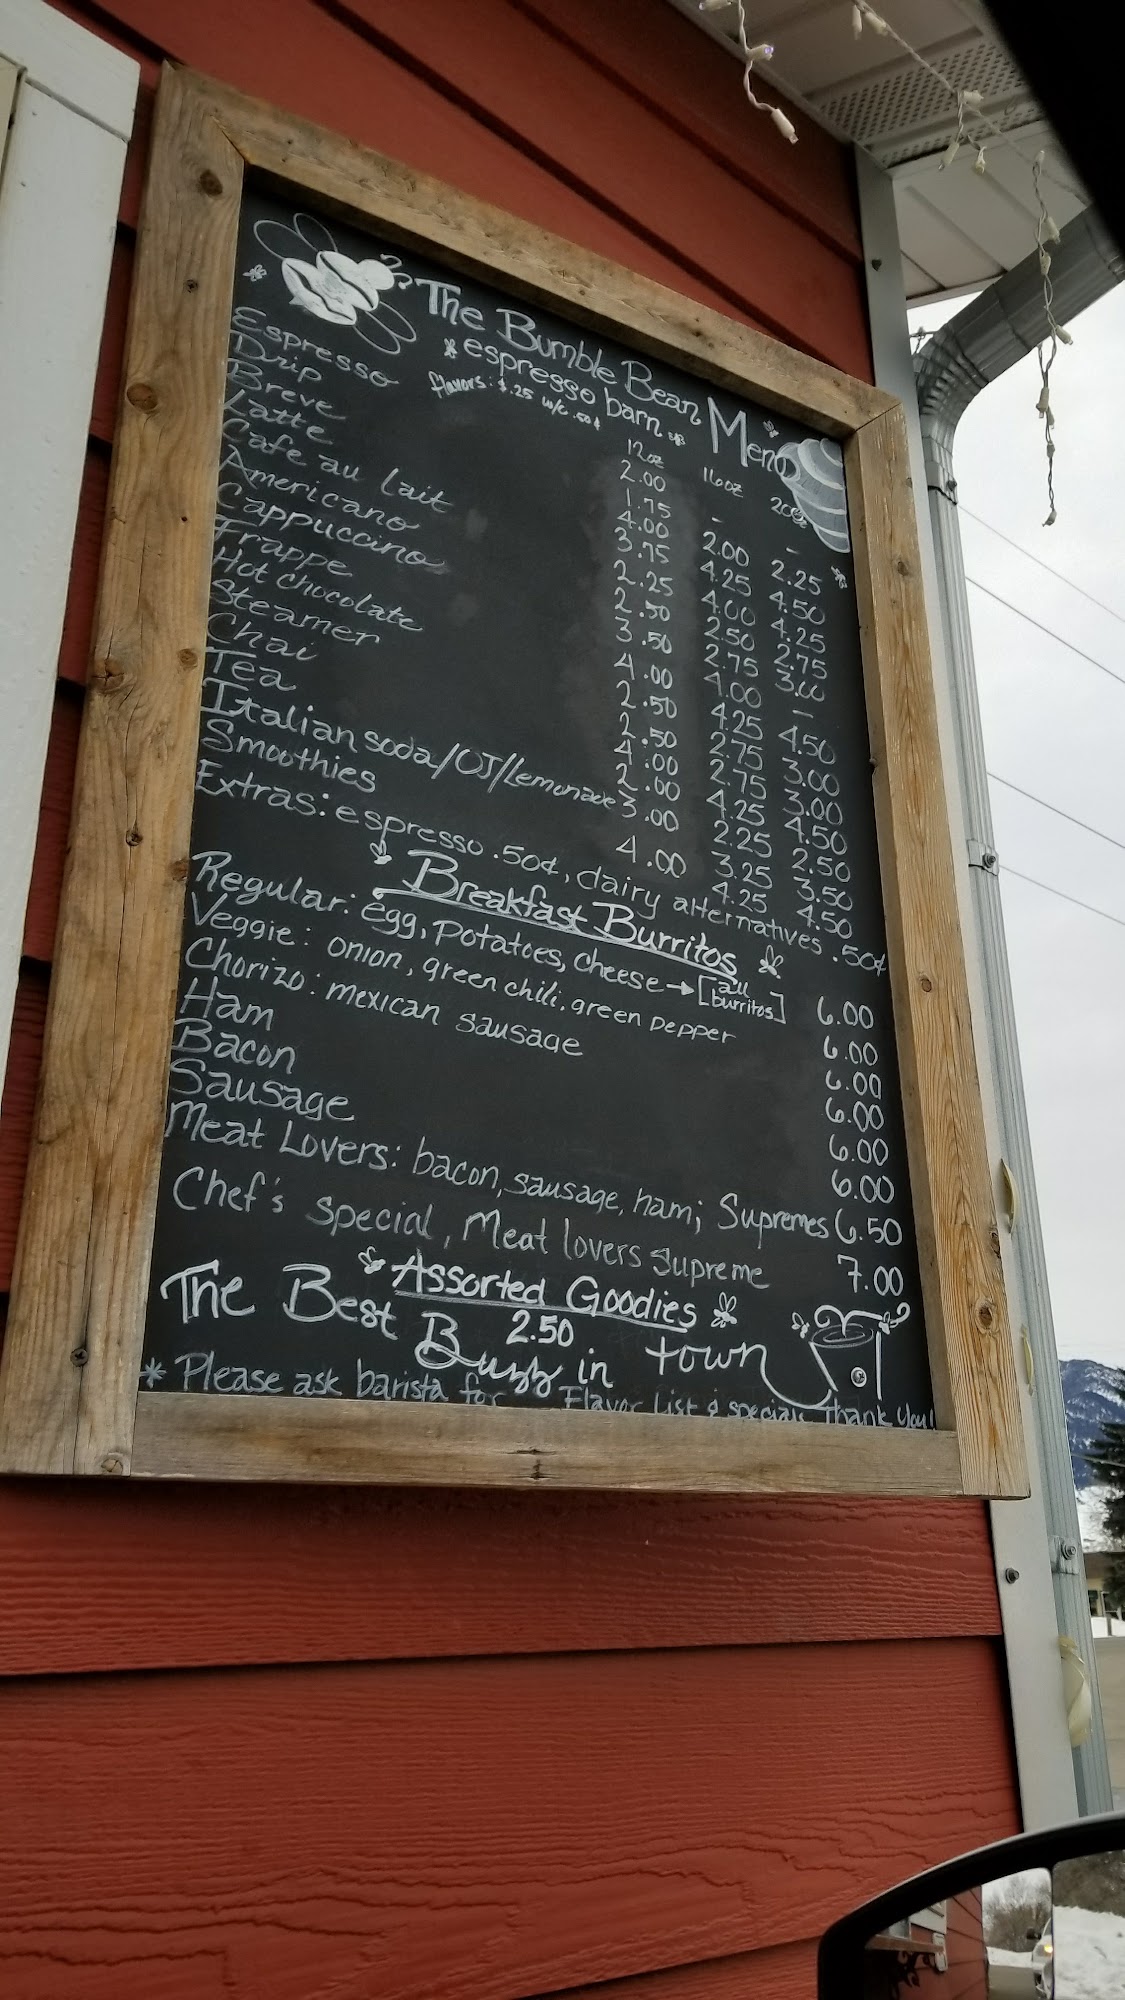 The Bumble Bean Menu
espresso barn
flavors: $.25 w/c .50¢
12oz 16oz 20oz
Espresso 2.00 - -
Drip 1.75 2.00 2.25
Breve 4.00 4.25 4.50
Latte 3.75 4.00 4.25
Cafe au lait 2.25 2.50 2.75
Americano 2.50 2.75 3.00
Cappuccino 3.50 4.00 -
Frappe 4.00 4.25 4.50
Hot chocolate 2.50 2.75 3.00
Steamer 2.50 2.75 3.00
Chai 4.00 4.25 4.50
Tea 2.00 2.25 2.50
Italian soda/OJ/Lemonade 3.00 3.25 3.50
Smoothies 4.00 4.25 4.50
Extras: espresso .50¢, dairy alternatives .50¢
Breakfast Burritos
Regular: egg, potatoes, cheese → [all burritos] 6.00
Veggie: onion, green chili, green pepper 6.00
Chorizo: mexican sausage 6.00
Ham 6.00
Bacon 6.00
Sausage 6.00
Meat Lovers: bacon, sausage, ham; Supremes 6.50
Chef's special, Meat lovers supreme 7.00
Assorted Goodies
2.50
The Best Buzz in town
* Please ask barista for Flavor list & specials Thank you!